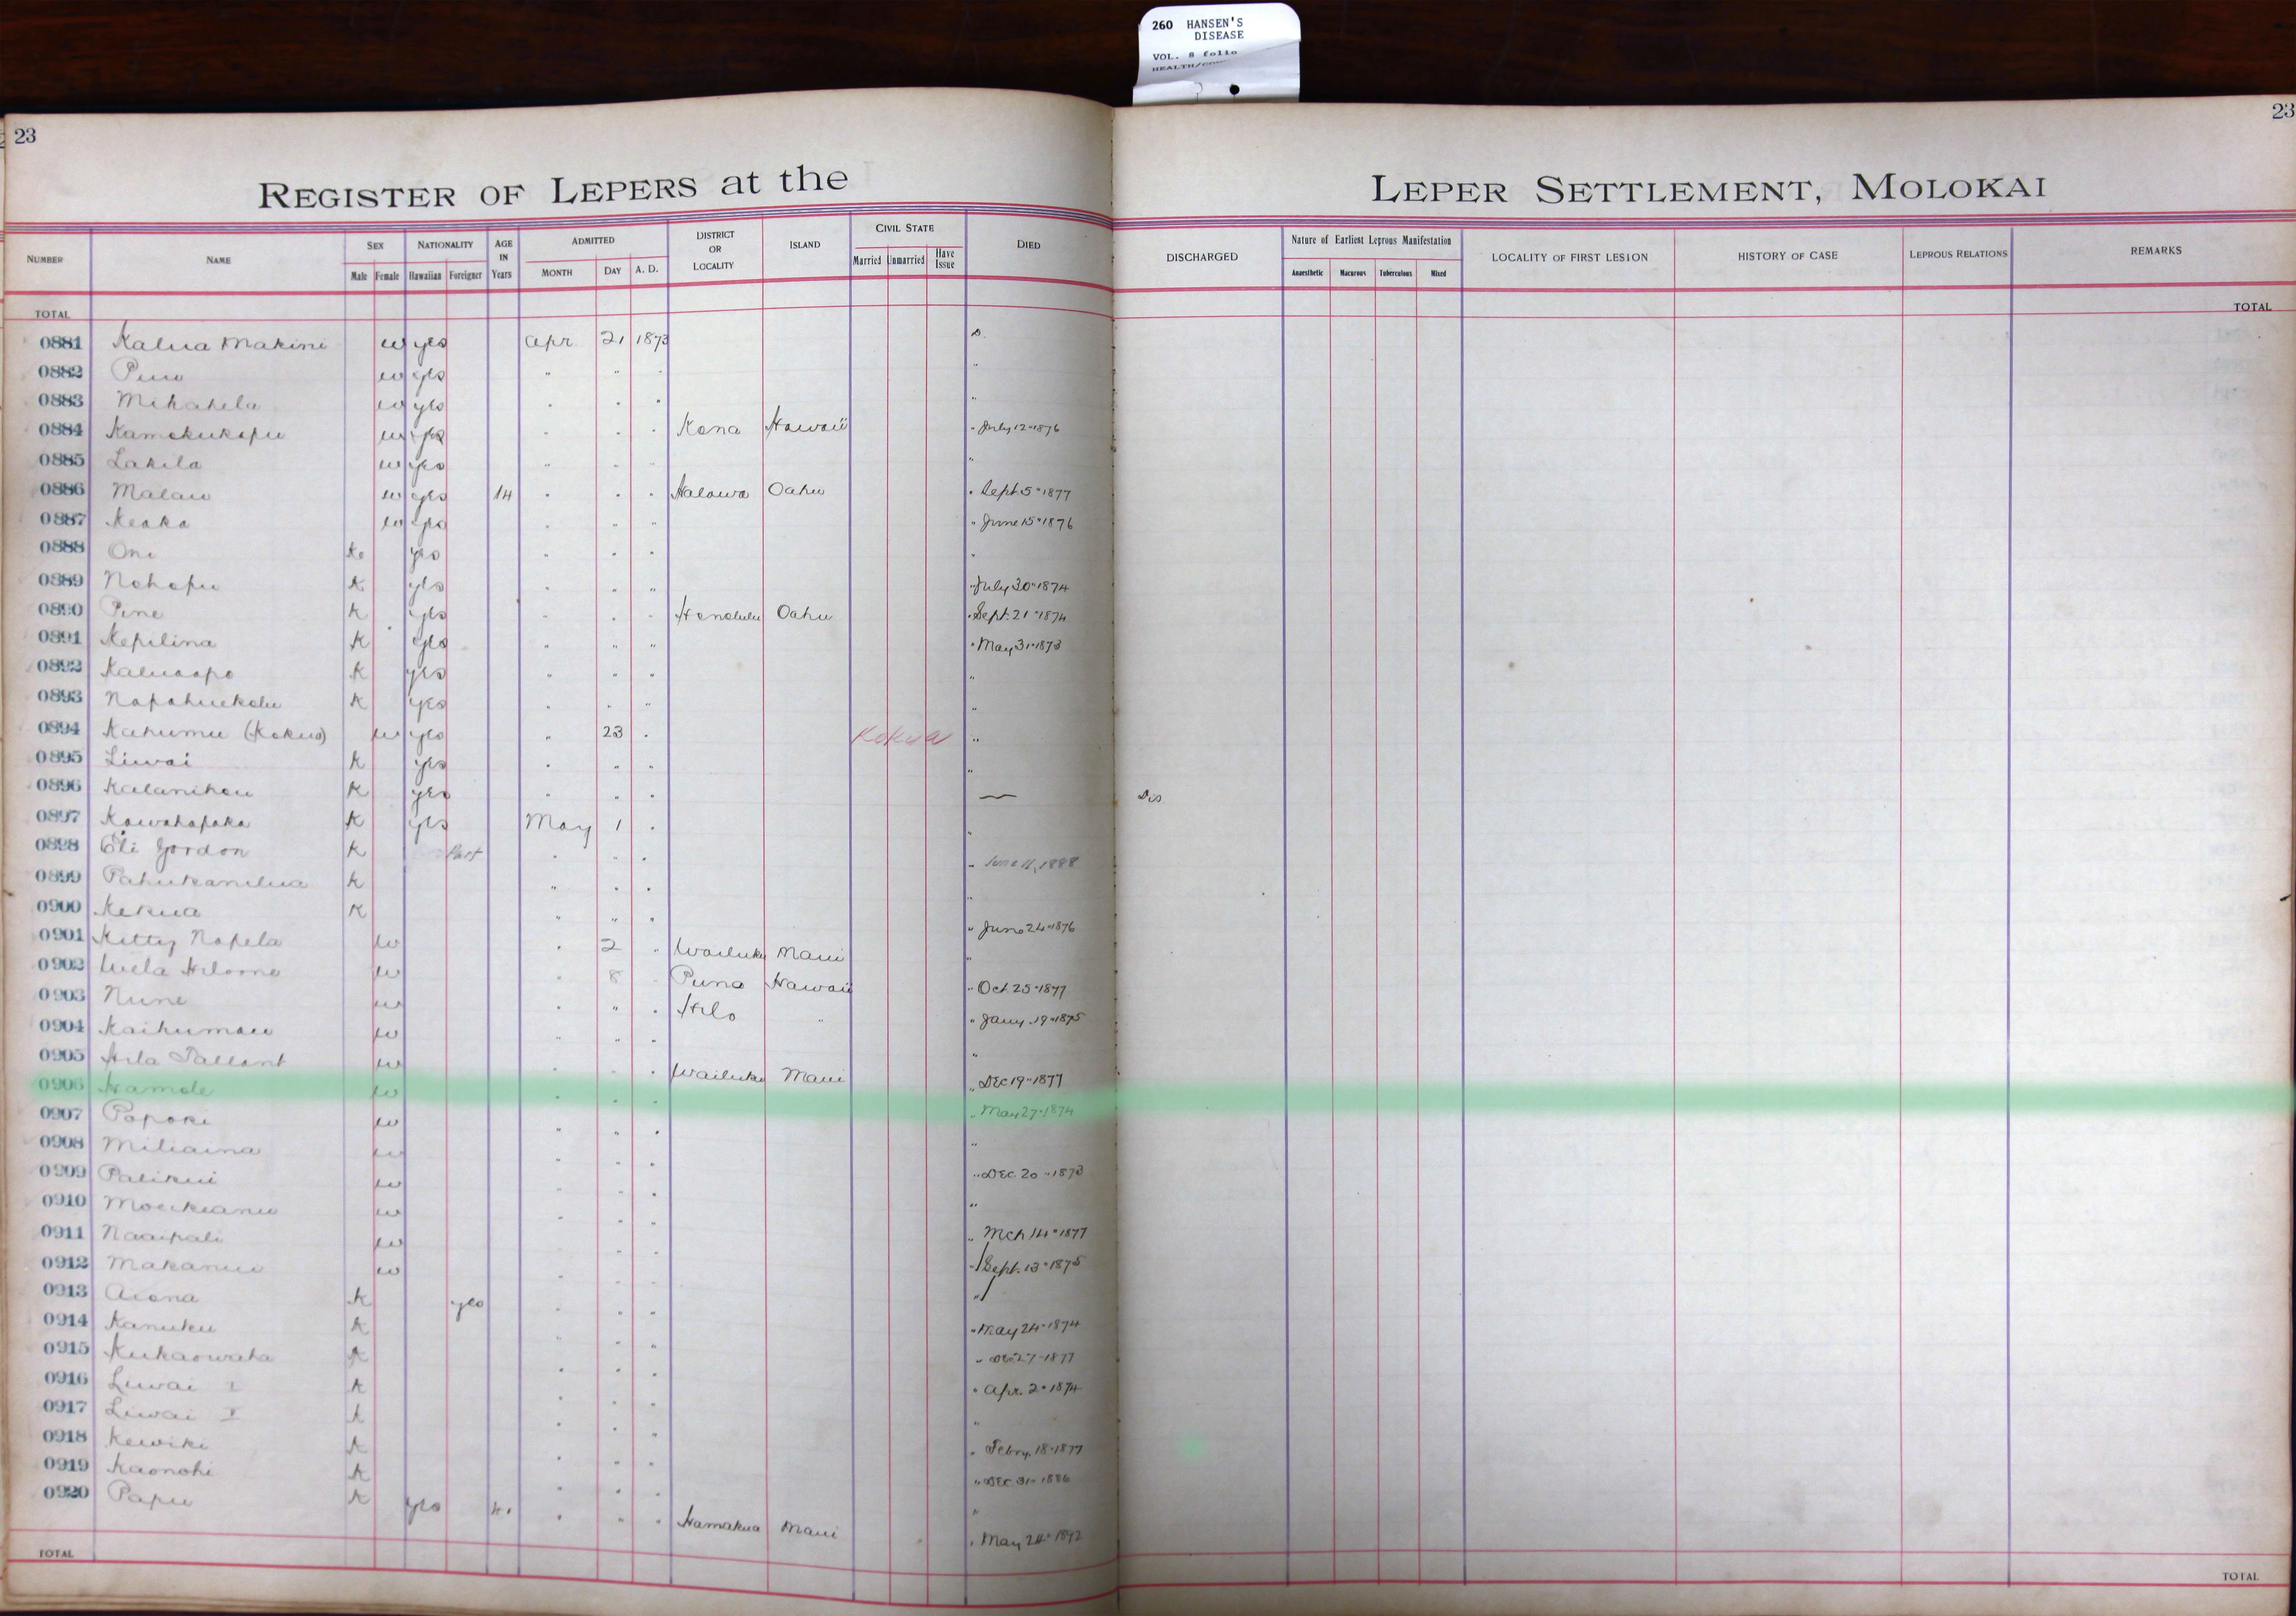 260 HANSEN'S
DISEASE
VOL. 8 folio
23
23
REGISTER OF LEPERS at the LEPER SETTLEMENT, MOLOKAI
NUMBER NAME SEX NATIONALITY AGE IN Years ADMITTED DISTRICT OR LOCALITY ISLAND CIVIL STATE DIED DISCHARGED Nature of Earliest Leprous Manifestation LOCALITY OF FIRST LESION HISTORY OF CASE LEPROUS RELATIONS REMARKS
Male Female Hawaiian Foreigner MONTH DAY A. D. Married Unmarried Have Issue Anaesthetic Macurous Tuberculous Mixed
TOTAL TOTAL
0881 Kalua Makini w yes Apr 21 1873 D.
0882 w yes " " " "
0883 Mikahela w yes " " " "
0884 Kamokukapu w yes " " " Kona Hawaii " July 12" 1876
0885 Lakila w yes " " " "
0886 Malau w yes 14 " " " Halawa Oahu " Sept. 5" 1877
0887 Keaka w yes " " " " June 15" 1876
0888 Oni K. yes " " " "
0889 Nohopu K yes " " " " July 30" 1874
0890 Pine K yes " " " Honolulu Oahu " Sept. 21" 1874
0891 Kepilina K yes " " " " May 31" 1873
0892 K yes " " " "
0893 Napahuekolu K yes " " " "
0894 Kahumu (Kokua) w yes " 23 " Kokua "
0895 Liwai K yes " " " "
0896 Kalanihou K yes " " " — Dis
0897 Kawahapaka K yes May 1 " "
0898 Eli Gordon K Part " " " " June 11, 1888
0899 Pahukanilua K " " " "
0900 Kekua K " " " " June 24" 1876
0901 Kitty Napela w " 2 " Wailuku Maui "
0902 w " 8 " Puna Hawaii " Oct. 25" 1877
0903 Nune w " " " Hilo " " Jany. 19" 1875
0904 Kaihumau w " " " "
0905 Hila w " " " Wailuku Maui " Dec 19" 1877
0906 Hamole w " " " May 27" 1874
0907 Papoki w " " " "
0908 Miliaina w " " " " Dec. 20" 1873
0909 Palikui w " " " "
0910 Moekeanu w " " " " Mch 14" 1877
0911 Naaipali w " " " " Sept. 13" 1875
0912 Makanui w " " " "
0913 Aiona K yes " " " " May 24" 1874
0914 Kanuku K " " " Dec 27" 1877
0915 Kukaowaha K " " " " Apr. 2" 1874
0916 Liwai I K " " " "
0917 Liwai K " " " " Febry. 18" 1877
0918 Kewiki K " " " " Dec. 31" 1886
0919 Kaonohi K " " " "
0920 Papu K yes " " " Hamakua Maui " May 24" 1892
TOTAL TOTAL